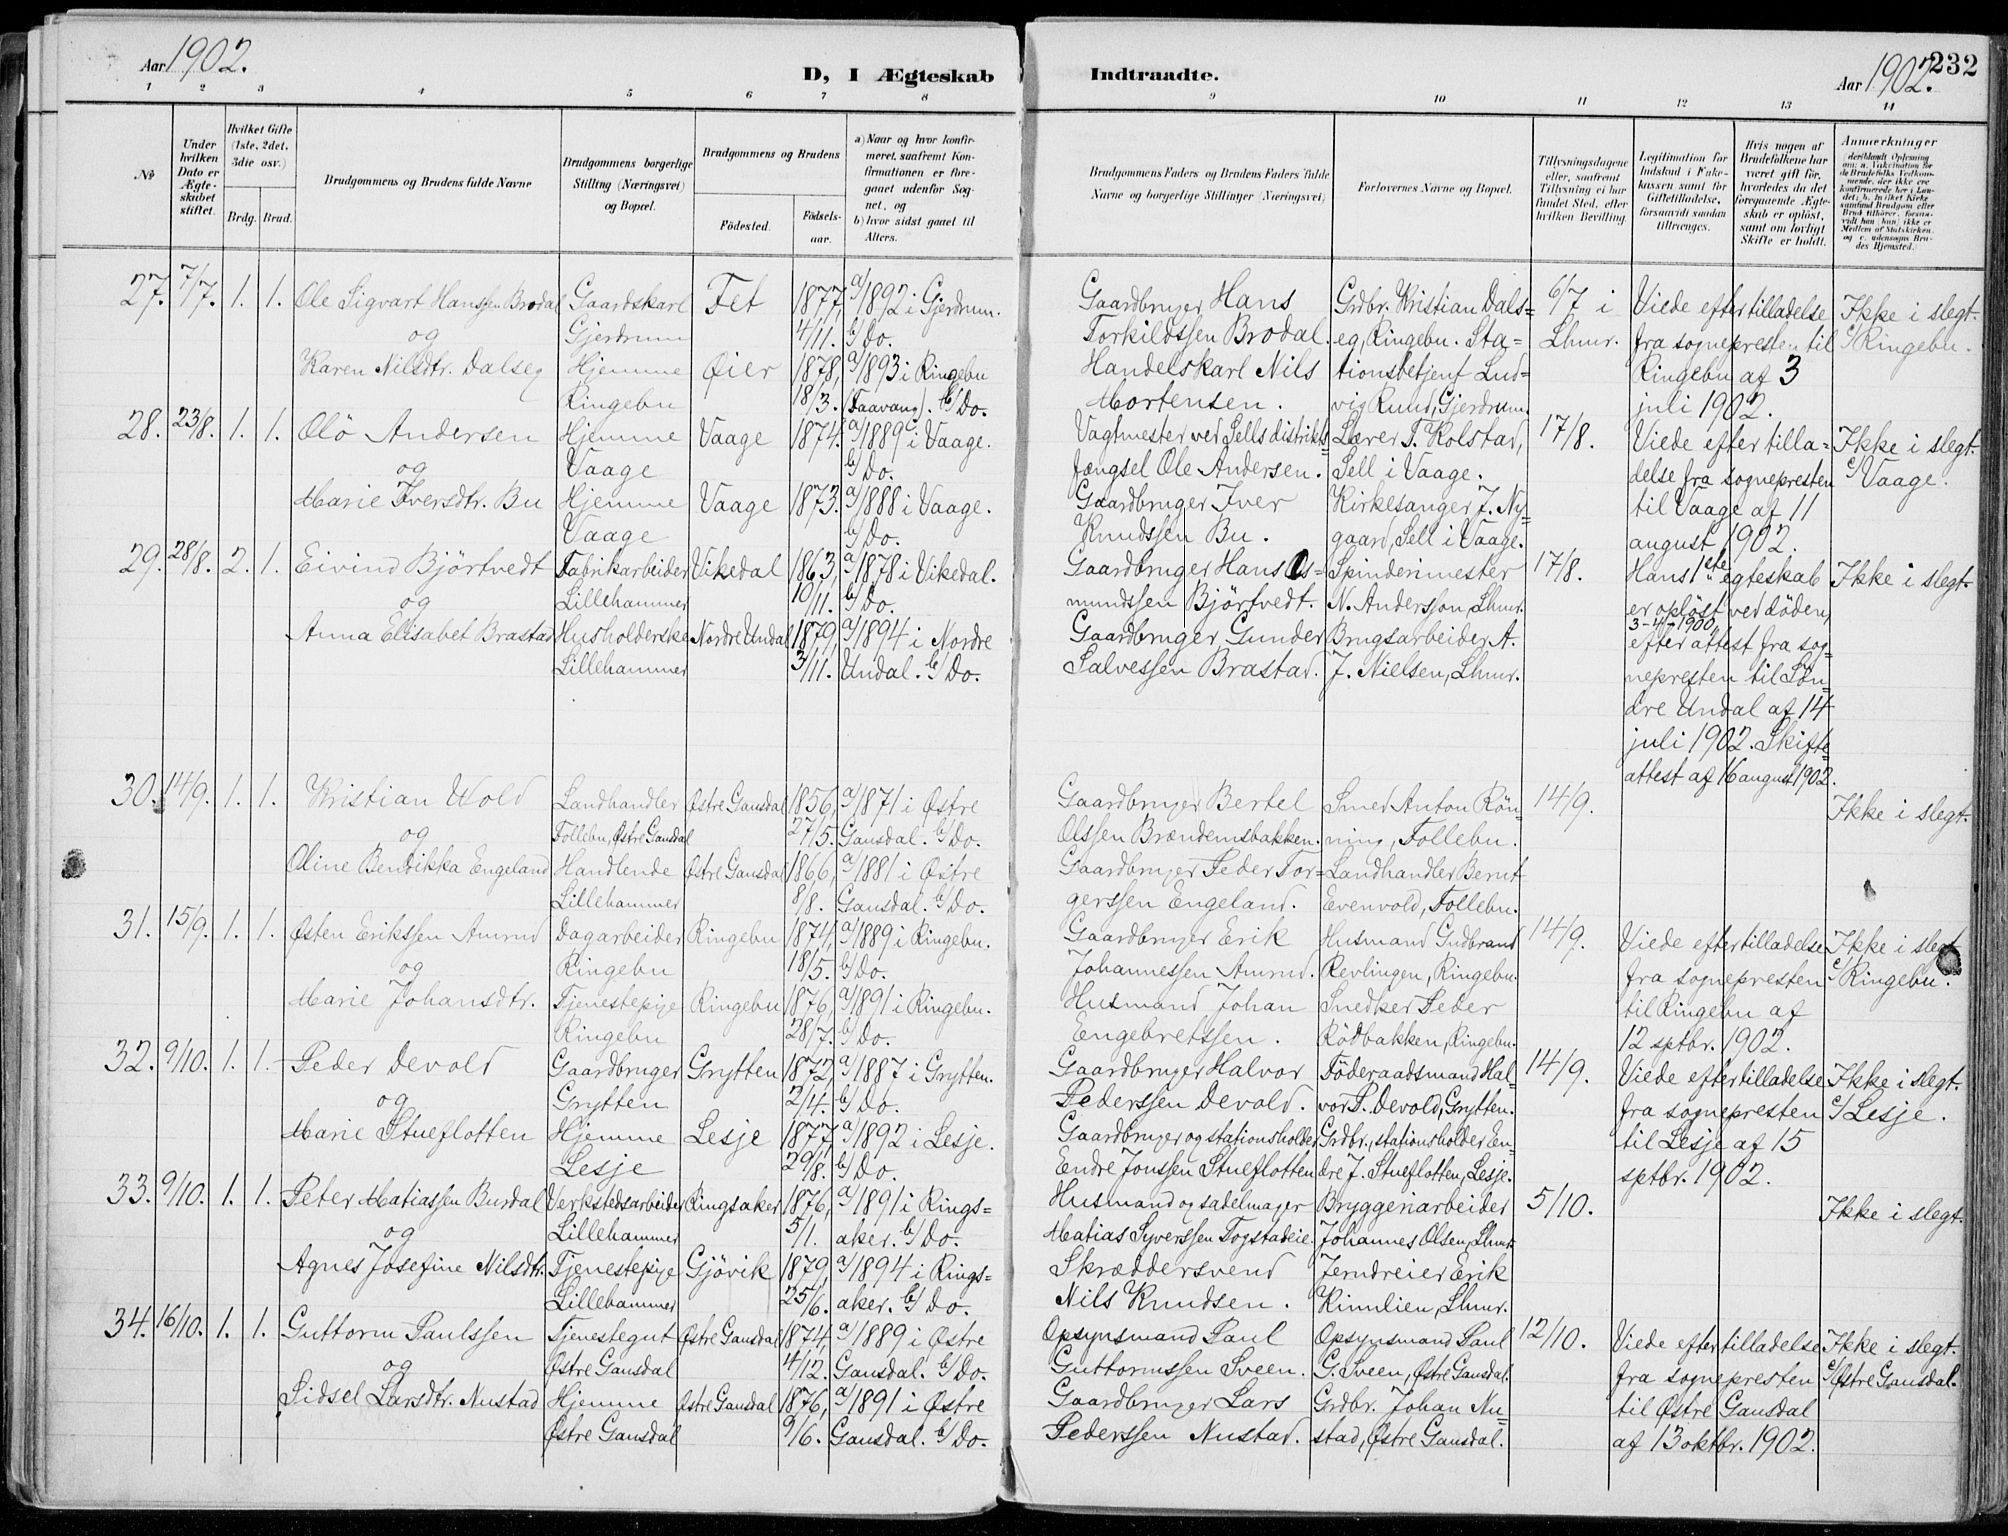 Aar 1902.
D, I Ægteskab
Indtraadte.
Aar 1902.
232
1 2 3 4 5 6 7 8
9 10 11 12 13 14
No
Under hvilken Dato er Ægteskabet stiftet.
Hvilket Gifte (1ste, 2det, 3die osv.)
Brdg. Brud.
Brudgommens og Brudens fulde Navne
Brudgommens borgerlige Stilling (Næringsvei) og Bopæl.
Brudgommens og Brudens
Fødested.
Fødselsaar.
a) Naar og hvor konfirmeret, saafremt Konfirmationen er foregaaet udenfor Sognet, og
b) hvor sidst gaaet til Alters.
Brudgommens Faders og Brudens Faders fulde Navne og borgerlige Stillinger (Næringsvei)
Forlovernes Navne og Bopæl.
Tillysningsdagene eller, saafremt Tillysning ei har fundet Sted, efter hvilken Bevilling.
Legitimation for Indskud i Enkekassen samt for Giftetilladelse, forsaavidt saadan tiltrænges.
Hvis nogen af Brudefolkene har været gift før, hvorledes da det foregaaende Ægteskab er opløst, samt om lovligt Skifte er holdt.
Anmerkninger
27. 7/7. 1. 1. Ole Sigvart Hanssen Brodal Gaardskarl Fet 1877, a/1892 i Gjerdrum. Gaardbruger Hans Grdbr. Kristian Dals= 6/7 i Viede efter tilladelse Ikke i slegt.
og Gjerdrum 4/11. b/ Do. Torkildssen Brodal. eg, Ringebu. Sta= Lhmr. fra sognepresten til c/ Ringebu.
Karen Nilsdtr. Dalseg Hjemme Øier 1878, a/1893 i Ringebu Handelskarl Nils tionsbetjent Lud= Ringebu af 3
Ringebu 18/3. (Faavang). b/ Do. Mortensen. vig Rund, Gjerdrum. juli 1902.
28. 23/8. 1. 1. Olö Andersen Hjemme Vaage 1874. a/1889 i Vaage. Vagtmester ved Sells distrikts Lærer T. Kolstad, 17/8. Viede efter tilla= Ikke i slegt.
og Vaage b/ Do. fængsel Ole Andersen. Sell i Vaage. delse fra sognepresten c/ Vaage.
Marie Iversdtr. Bu Hjemme Vaage 1873. a/1888 i Vaage. Gaardbruger Iver Kirkesanger J. Ny= til Vaage af 11
Vaage b/ Do. Knudssen Bu. gaard, Sell i Vaage. august 1902.
29. 28/8. 2. 1. Eivind Björtvedt Fabrikarbeider Vikedal 1863, a/1878 i Vikedal. Gaardbruger Hans Os= Spinderimester 17/8. Hans 1ste egteskab Ikke i slegt.
og Lillehammer 10/11. b/ Do. mundssen Björtvedt. N. Andersson, Lhmr. er oplöst ved döden,
3-4-1900,
Anna Elisabet Brastad Husholderske Nordre Undal 1879, a/1894 i Nordre Gaardbruger Gunder Brugsarbeider A. efter attest fra sog=
Lillehammer 3/11. Undal. b/ Do. Salvessen Brastad. J. Nielsen, Lhmr. nepresten til Sön=
dre Undal af 14
juli 1902. Skifte
attest af 16 august 1902.
30. 14/9. 1. 1. Kristian Wold Landhandler Østre Gausdal 1856, a/1871 i Østre Gaardbruger Bertel Smed Anton Rön= 14/9. Ikke i slegt.
og Follebu, Østre Gausdal 27/5. Gausdal. b/ Do. Olssen Brændemsbakken. ning, Follebu.
Oline Bendikka Engeland Handlende Østre Gausdal 1866, a/1881 i Østre Gaardbruger Peder Tor= Landhandler Bernt
Lillehammer 8/8. Gausdal. b/ Do. gerssen Engeland. Evenvold, Follebu.
31. 15/9. 1. 1. Østen Erikssen Amrud Dagarbeider Ringebu 1874, a/1889 i Ringebu. Gaardbruger Erik Husmand Gudbrand 14/9. Viede efter tilladelse Ikke i slegt
og Ringebu 18/5. b/ Do. Johannessen Amrud. Revlingen, Ringebu. fra sognepresten c/ Ringebu.
Marie Johansdtr. Tjenestepige Ringebu 1876, a/1891 i Ringebu. Husmand Johan Snedker Peder til Ringebu af
Ringebu 28/7. b/ Do. Engebretssen. Rödbakken, Ringebu. 12 sptbr. 1902.
32. 9/10. 1. 1. Peder Devold Gaardbruger Grytten 1872, a/1887 i Grytten. Gaardbruger Halvor Föderaadsmand Hal= 14/9. Viede efter tilladelse Ikke i slegt.
og Grytten 2/4. b/ Do. Pederssen Devold. vor P. Devold, Grytten. fra sognepresten c/ Lesje.
Marie Stueflotten Hjemme Lesje 1877, a/1892 i Lesje. Gaardbruger og stationsholder Grdbr., stationsholder En= til Lesje af 15
Lesje 29/8. b/ Do. Endre Jonssen Stueflotten dre J. Stueflotten, Lesje. sptbr. 1902.
33. 9/10. 1. 1. Peter Matiassen Burdal Verkstedsarbeider Ringsaker 1876, a/1891 i Rings= Husmand og sadelmager Bryggeriarbeider 5/10. Ikke i slegt.
og Lillehammer 5/1. aker. b/ Do. Matias Syverssen Togstadeie. Johannes Olsen, Lhmr.
Agnes Josefine Nilsdtr. Tjenestepige Gjövik 1879, a/1894 i Rings= Skræddersvend Jerndreier Erik
Lillehammer 25/6. aker. b/ Do. Nils Knudsen. Rinnlien, Lhmr.
34. 16/10. 1. 1. Guttorm Paulssen Tjenestegut Østre Gausdal 1874, a/1889 i Østre Opsynsmand Paul Opsynsmand Paul 12/10. Viede efter tilladelse Ikke i slegt.
og Østre Gausdal 4/12. Gausdal. b/ Do. Guttormssen Sveen. G. Sveen, Østre Gausdal. fra sognepresten c/ Østre Gausdal.
Sidsel Larsdtr. Nustad Hjemme Østre Gausdal 1876, a/1891 i Østre Gaardbruger Lars Grdbr. Johan Nu= til Østre Gausdal
Østre Gausdal 9/6. Gausdal. b/ Do. Pederssen Nustad. stad, Østre Gausdal. af 13 oktbr. 1902.